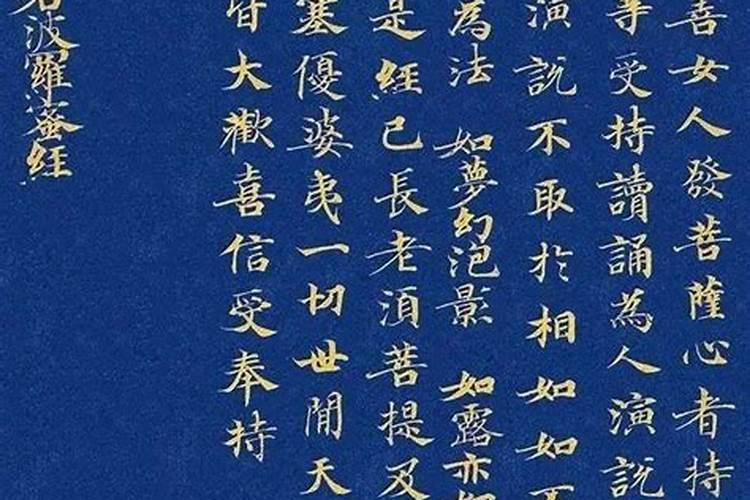 善女人發菩薩心者持
等受持讀誦為人演說
演說不取於相如如不
為法 如夢幻泡影 如露亦如
是經已長老須菩提及
塞優婆夷一切世間天
皆大歡喜信受奉持
若波羅蜜經